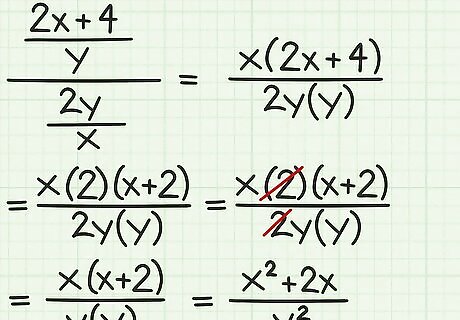 2x + 4
y
2y
x
=
x(2x + 4)
2y(y)
= x(2)(x+2)
2y(y)
= x(2)(x+2)
2y(y)
= x(x+2)
y(y)
= x² + 2x
y²